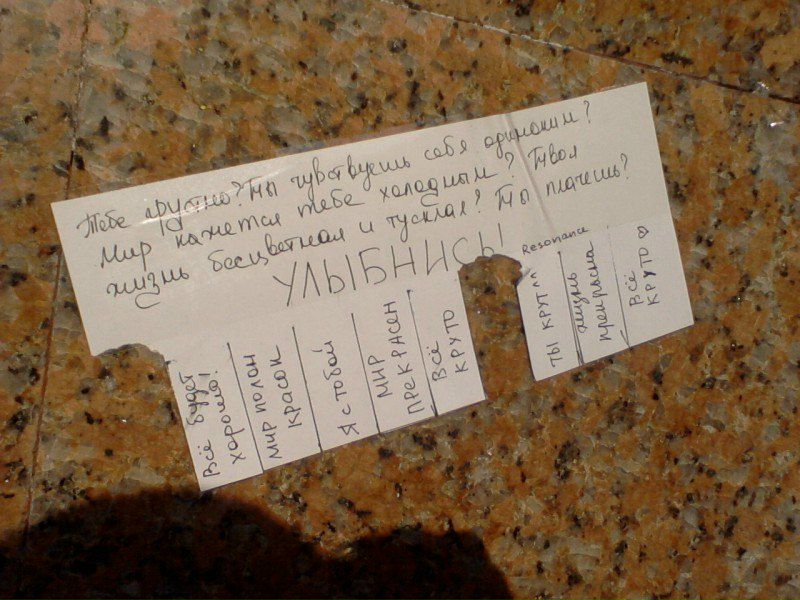 Тебе грустно? Ты чувствуешь себя одиноким?
Мир кажется тебе холодным? Твоя
жизнь бесцветная и тусклая? Ты плачешь?
УЛЫБНИСЬ!
Resonance
Всё будет
хорошо!
МИР ПОЛОН
КРАСОК
Я С ТОБОЙ
МИР
ПРЕКРАСЕН
ВСЁ
КРУТО
ТЫ КРУТ
ЖИЗНЬ
прекрасна
ВСЁ
КРУТО ♡